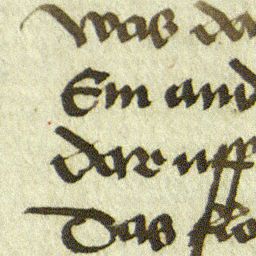 Was da
Ein and
dar uff
Das flo